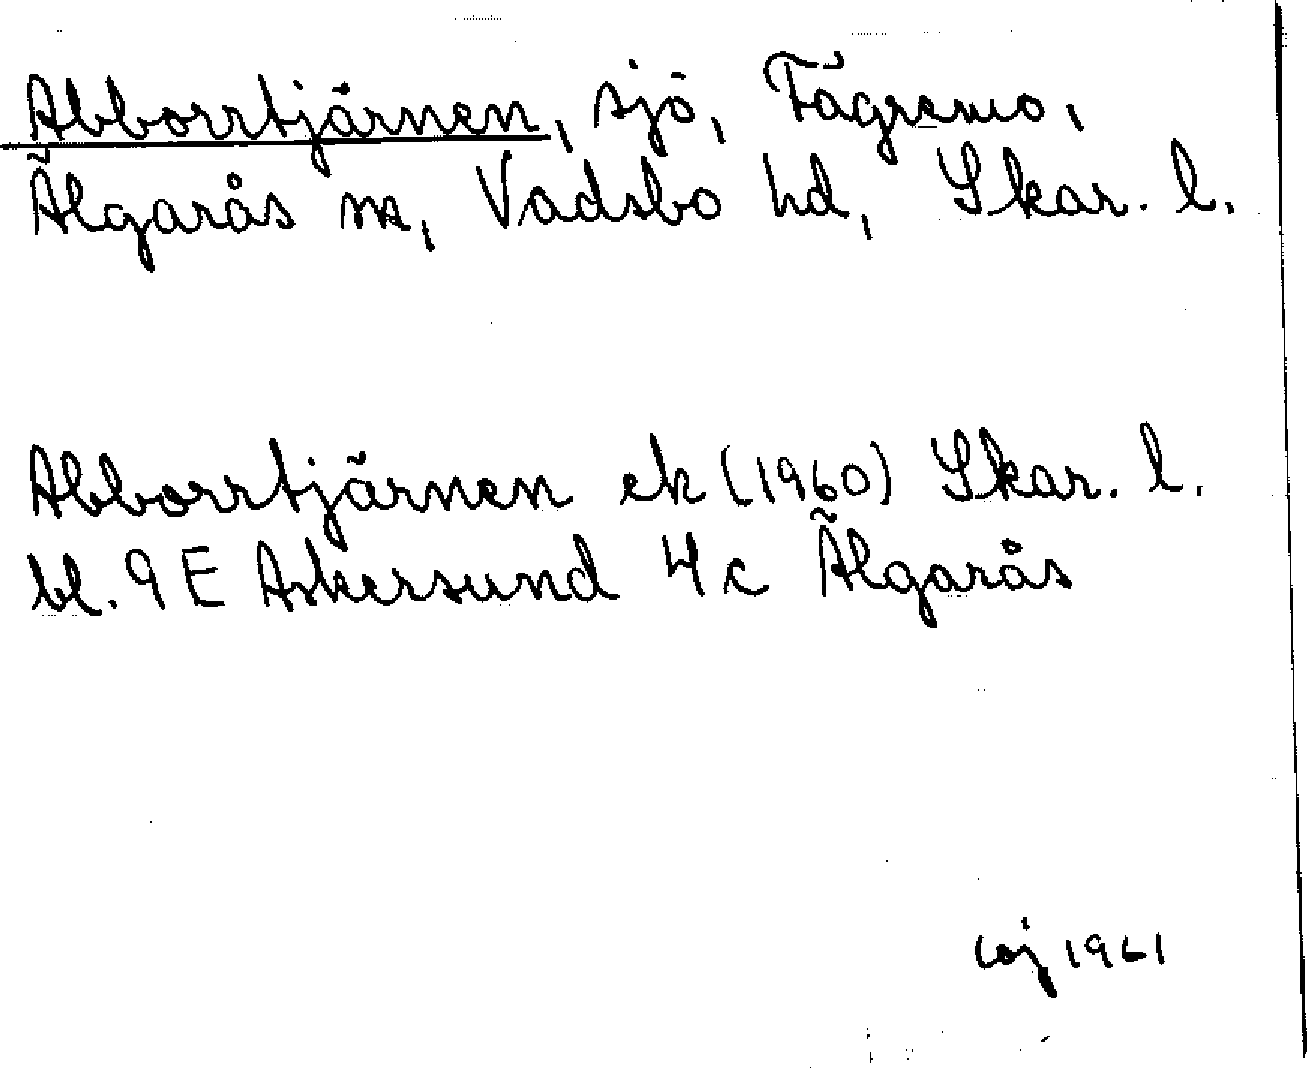 Abborrtjärnen, sjö, Fägremo,
Älgarås sn, Vadsbo hd, Skar. l.
Abborrtjärnen ek (1960) Skar. l.
bl. 9 E Askersund 4c Älgarås
1961